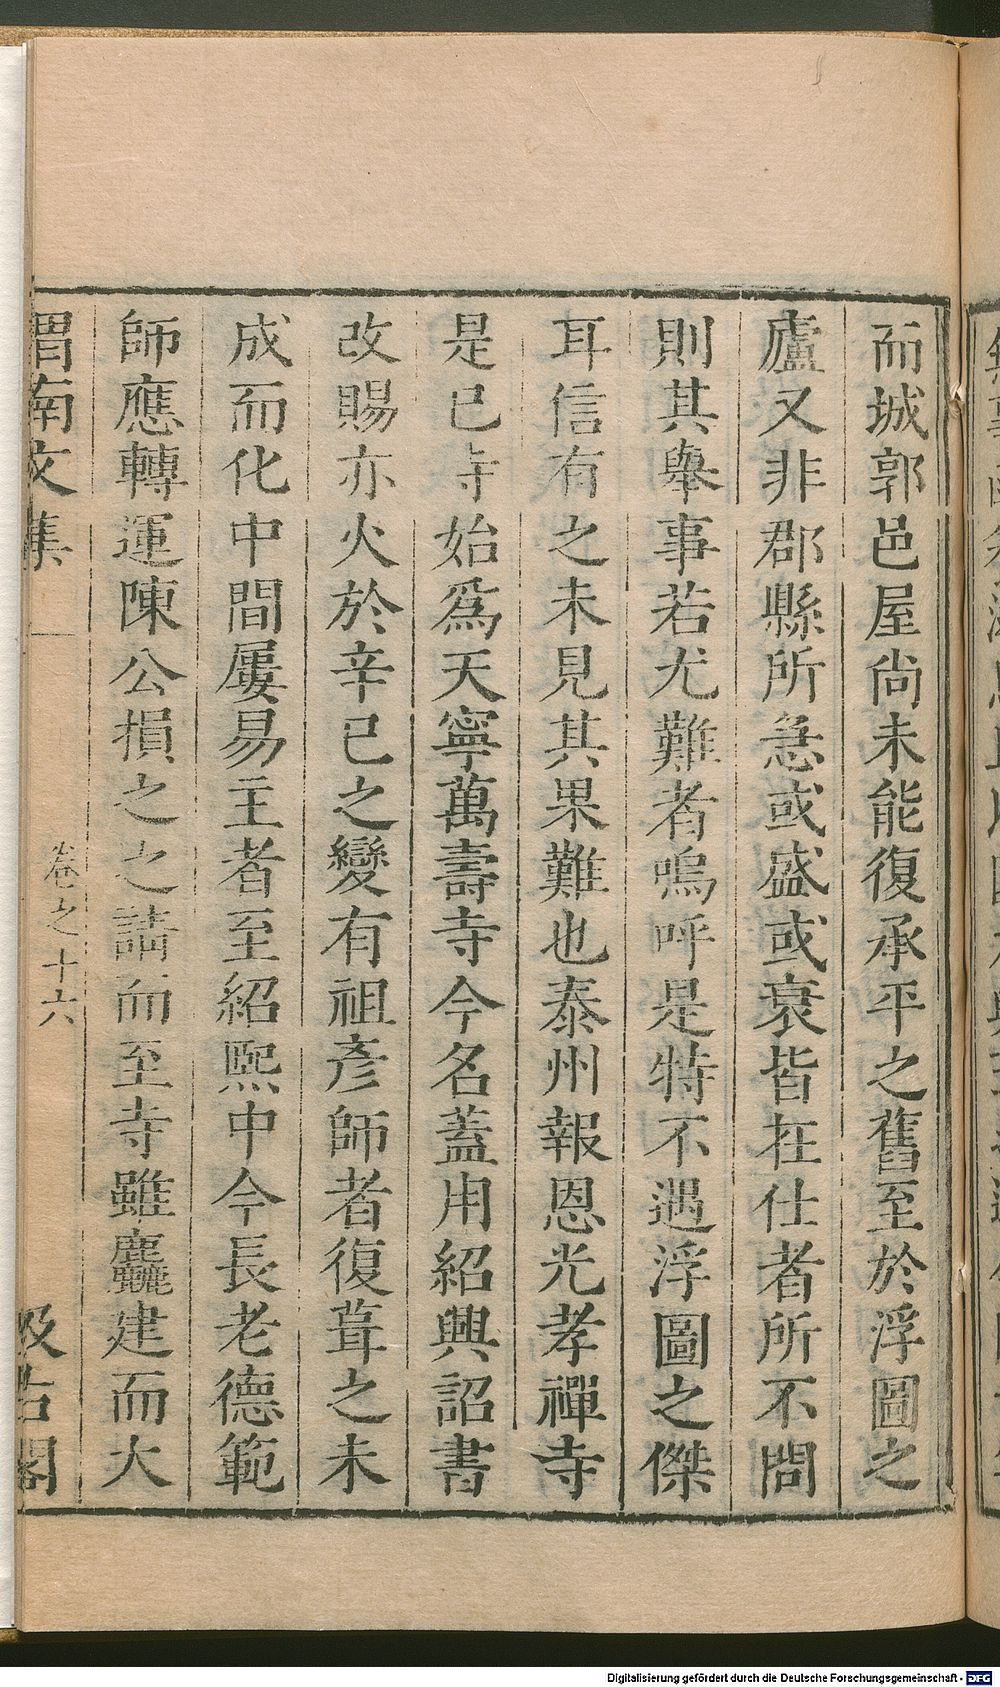 而城郭邑屋尚未能復承平之舊至於浮圖之
廬又非郡縣所急或盛或衰皆在仕者所不問
則其舉事若尤難者嗚呼是特不遇浮圖之傑
耳信有之未見其果難也泰州報恩光孝禪寺
是已寺始爲天寧萬壽寺今名蓋用紹興詔書
改賜亦火於辛巳之變有祖彥師者復葺之未
成而化中間屢易主者至紹熙中今長老德範
師應轉運陳公損之之請而至寺雖麤建而大
渭南文集
卷之十六
汲古閣
Digitalisierung gefördert durch die Deutsche Forschungsgemeinschaft - DFG